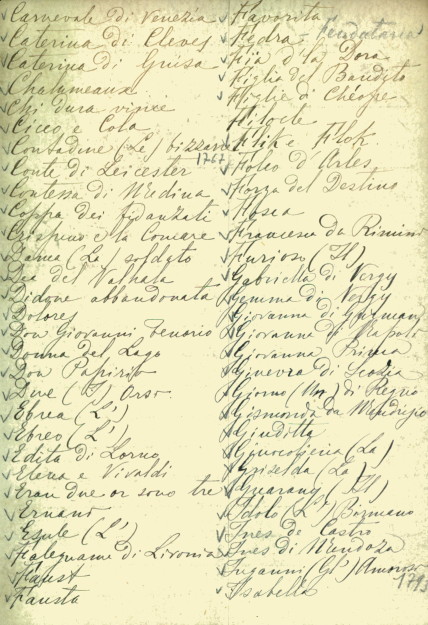 Carnevale di Venezia
Caterina di Cleves
Caterina di Guisa
Chalumeaux
Chi dura vince
Cicco e Cola
Contadine (Le) bizzarre
1767
Conte di Leicester
Contessa di Medina
Coppa dei fidanzati
Crispino e la Comare
Dama (La) soldato
Dea del Valhala
Didone abbandonata
Dolores
Don Giovanni Tenorio
Donna del Lago
Don Papirio
Due (I) Orso
Ebrea (L')
Ebreo (L')
Edita di Lorno
Elena e Vivaldi
Eran due or sono tre
Ernani
Esule (L')
Falegname di Livonia
Faust
Fausta
Favorita
Fedra = Feudataria
Fia d la Dora
Figlia del Bandito
Figlie di Chéope
Filocle
Flik e Flok
Folco d'Arles
Forza del Destino
Fosca
Francesca da Rimini
Furioso (Il)
Gabriella di Vergy
Gemma di Vergy
Giovanna di Guzman
Giovanna di Napoli
Giovanna Prima
Ginevra di Scozia
Giorno (Un) di Regno
Gismonda da Mendrisio
Giuditta
(La)
Griselda (La)
Guarany (Il)
Idolo (L') Birmano
Ines de Castro
Ines di Mendoza
Inganni (Gl') Amorosi
Isabella